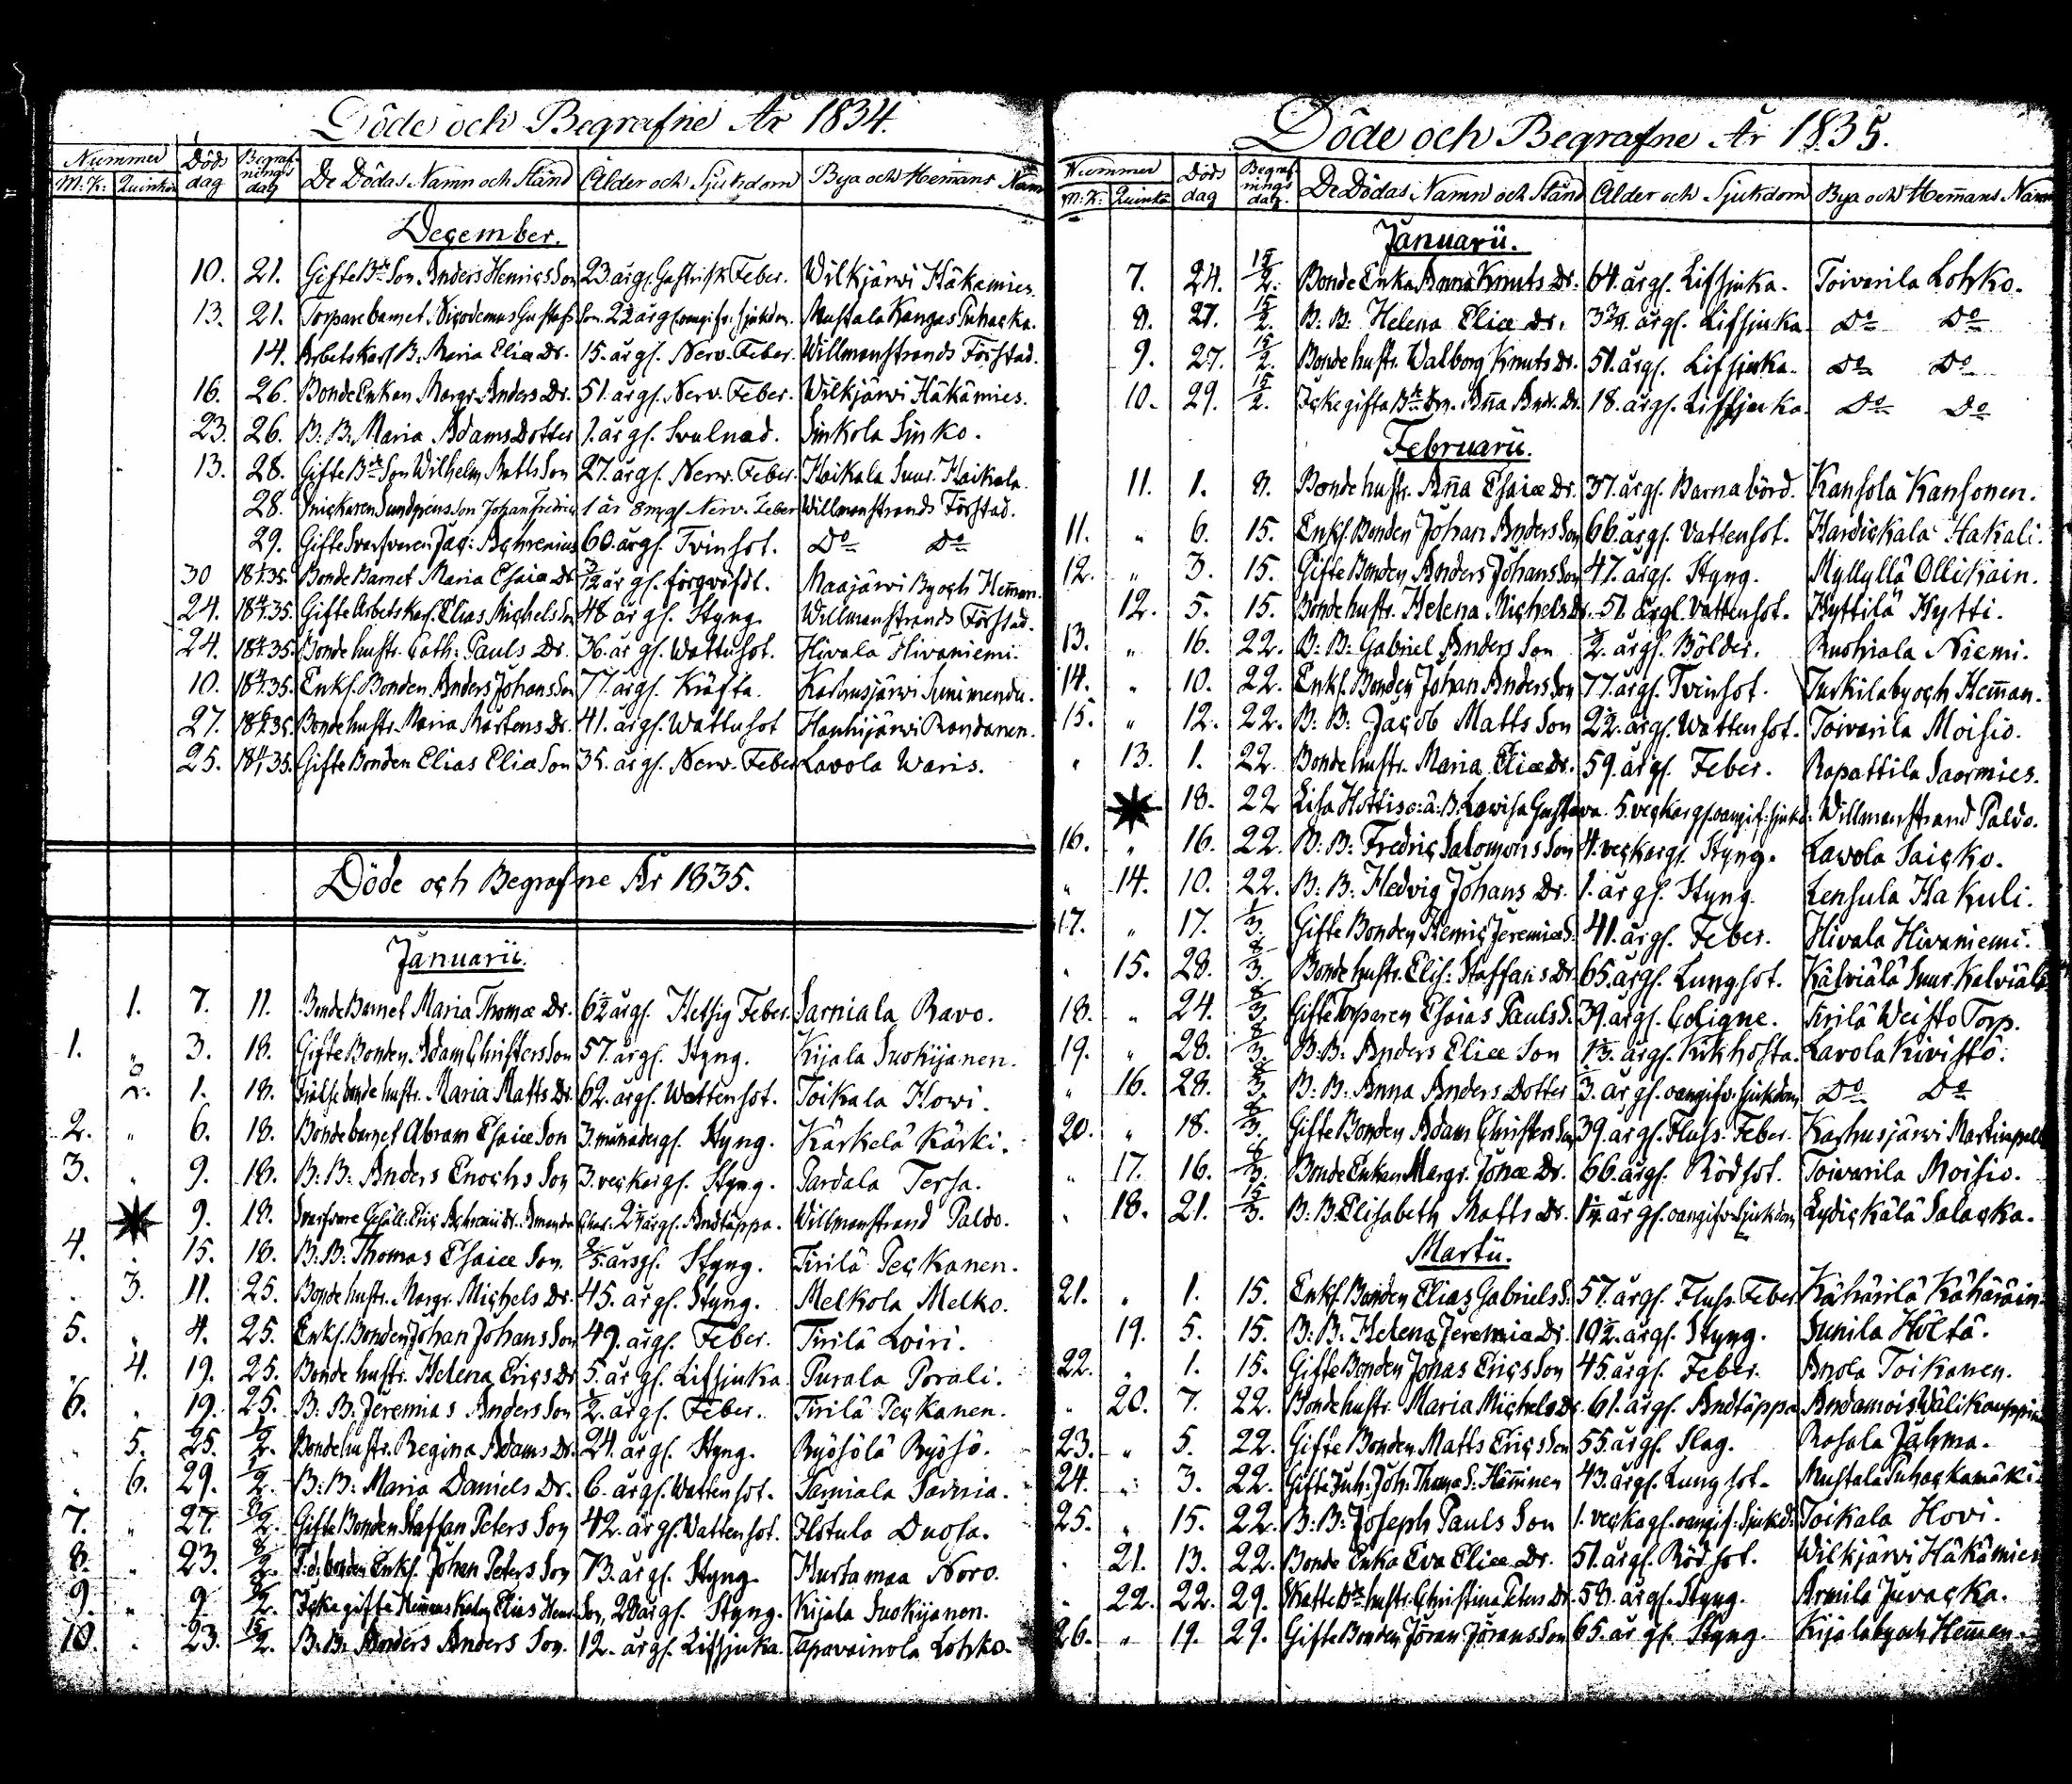 Döde och Begrafne År 1834.
Nummer Döds dag Begrafnings dag De Dödas Namn och Stånd Ålder och Sjukdom Bya och Hem̄ans Namn
M:K: Quinkön
December.
10. 21. Gifte Bde Son Anders Henrics Son 23 årgl. Gastrisk Feber. Wilkjärwi Häkämies.
13. 21. Torpare barnet Nicodemus Gustafs Son. 2 årgl. oangifv. sjukdom. Mustala Kangas Puhacka.
14. Arbets Karl B. Maria Eliæ Dr. 15. årgl. Nerv. Feber. Willmanstrands Förstad.
16. 26. Bonde Enkan Margr. Anders Dr. 51. årgl. Nerv. Feber. Wilkjärwi Häkämies.
23. 26. B: B: Maria Adams Dotter 1. årgl. Svulnad. Sinkola Sinko.
13. 28. Gifte Bde Son Wilhelm Matts Son 27. årgl. Nerv. Feber. Haikala Suur Haikala.
28. Snickaren Sundgrens Son Johan Fredric 1 år 8 mgl. Nerv. Feber Willmanstrands Förstad.
29. Gifte Svarfvaren Jac: Achrenius 60. årgl. Tvinsot. Do Do
30 18 35. Bonde Barnet Maria Esaiæ Dr. 3/12 årgl. förqväfdt. Maajärwi By och Hem̄an.
24. 18 35. Gifte Arbets Karl Elias Michels Son 48 årgl. Styng. Willmanstrands Förstad.
24. 18 35. Bonde hustr. Cath: Pauls Dr. 36. årgl. Wattusot. Hivala Hivaniemi.
10. 18 35. Enkl. Bonden Anders Johans Son 77. årgl. Kräfta. Karhusjärwi Sunimendu.
27. 18 35. Bonde hustr. Maria Mårtens Dr. 41. årgl. Wattusot Hanhijärwi Randanen.
25. 18 35. Gifte Bonden Elias Eliæ Son 35. årgl. Nerv. Feber Lavola Waris.
Döde och Begrafne År 1835.
Januarii.
1. 7. 11. Bonde Barnet Maria Thomæ Dr. 6½ årgl. Hetsig Feber. Sarniala Ravo.
1. „ 3. 18. Gifte Bonden Adam Christers Son 57. årgl. Styng. Kijala Suokijanen.
„ 2. 1. 18. Frälse bonde hustr. Maria Matts Dr. 62. årgl. Wattensot. Toikala Howi.
2. „ 6. 18. Bonde barnet Abram Esaiæ Son 3. månadergl. Styng. Kärkelä Kärki.
3. „ 9. 18. B: B: Anders Enochs Son 3. veckorgl. Styng. Pardala Tersa.
9. 18. Svarfvare Gesäll: Eric Achrenii Dr. Amanda Char. 2¼ årgl. Andtäppa. Willmanstrand Paldo.
4. 15. 18. B: B: Thomas Esaiæ Son. 2/5. årsgl. Styng. Tirilä Peckanen.
3. 11. 25. Bonde hustr. Margr. Michels Dr. 45. årgl. Styng. Melkola Melko.
5. „ 4. 25. Enkl. Bonden Johan Johans Son 49. årgl. Feber. Tirilä Loiri.
4. 19. 25. Bonde hustr. Helena Erics Dr 5. årgl. Lifsjuka. Purala Porali.
6. „ 19. 25. B: B: Jeremias Anders Son ½. årgl. Feber. Tirilä Peckanen.
5. 25. 1/2. Bonde hustr. Regina Adams Dr. 24. årgl. Styng. Ryösölä Ryösö.
„ 6. 29. 1/2. B: B: Maria Daniels Dr. 6. årgl. Wattensot. Sarniala Sarnia.
7. „ 27. 8/2. Gifte Bonden Staffan Peters Son 42. årgl. Vattensot. Ilotula Duosa.
8. „ 23. 8/2. F: d: bonden Enkl. Johan Peters Son 73. årgl. Styng. Hurtamaa Noro.
9. „ 9. 8/2. Icke gifte Hem̄ans Karlen Elias Henr. Son, 28 årgl. Styng. Kijala Suokijanen.
10. „ 23. 15/2. B: B: Anders Anders Son. 12. årgl. Lifsjuka. Tapavainola Lohko.
Döde och Begrafne År 1835.
Nummer Döds dag Begrafnings dag. De Dödas Namn och Stånd Ålder och Sjukdom Bya och Hem̄ans Namn
M:K: Quinkö
Januarii.
7. 24. 15/2. Bonde Enka Anna Knuts Dr. 64. årgl. Lifsjuka. Toivarila Lohko.
8. 27. 15/2. B: B: Helena Eliæ Dr. 3¾. årgl. Lifsjuka. Do Do
9. 27. 15/2. Bonde hustr. Walborg Knuts Dr. 51. årgl. Lifsjuka. Do Do
10. 29. 15/2. Icke gifta Bde Dr. An̄a Andr. Dr. 18. årgl. Lifsjuka. Do Do
Februarii.
11. 1. 8. Bonde hustr. An̄a Esaiæ Dr. 37. årgl. Barnabörd. Kansola Kansonen.
11. „ 6. 15. Enkl. Bonden Johan Anders Son 66. årgl. Vattensot. Hardickala Hakali.
12. „ 3. 15. Gifte Bonden Anders Johans Son 47. årgl. Styng. Myllylä Ollikain.
12. 5. 15. Bonde hustr. Helena Michels Dr. 51. årgl. Vattensot. Hyttilä Hytti.
13. „ 16. 22. B: B: Gabriel Anders Son ½. årgl. Bölder. Ruohiala Niemi.
14. „ 10. 22. Enkl. Bonden Johan Anders Son 77. årgl. Tvinsot. Turkila by och Hem̄an.
15. „ 12. 22. B: B: Jacob Matts Son 2½. årgl. Wattensot. Toivarila Moisio.
„ 13. 1. 22. Bonde hustr. Maria Eliæ Dr. 59. årgl. Feber. Rapattila Saarmies.
18. 22 Lisa Hottis o: ä: B. Lovisa Gustava. 5. veckorgl. oangif: sjukd: Willmanstrand Paldo.
16. „ 16. 22. B: B: Fredric Salomons Son 4. veckorgl. Styng. Lavola Saicko.
„ 14. 10. 22. B: B: Hedvig Johans Dr. 1. årgl. Styng. Lensula Hakuli.
17. „ 17. 1/3. Gifte Bonden Henric Jeremiæ S. 41. årgl. Feber. Hivala Hivaniemi.
15. 28. 8/3. Bonde hustr. Elis: Staffans Dr. 65. årgl. Lungsot. Kälviälä Suur Kälviälä
18. „ 24. 8/3. Gifte Torparen Esaias Pauls S. 39. årgl. Coligne. Tirilä Weisto Torp.
19. „ 28. 8/3. B: B: Anders Eliæ Son 1⅓. årgl. Kikhosta. Lavola Kivistö.
„ 16. 28. 8/3. B: B: Anna Anders Dotter 3. årgl. oangifv. sjukdom Do Do
20. „ 18. 8/3. Gifte Bonden Adam Christers Son 39. årgl. Fluss. Feber. Karhusjärwi Martinpell
„ 17. 16. 8/3. Bonde Enkan Margr. Jonæ Dr. 66. årgl. Rödsot. Toivarila Moisio.
„ 18. 21. 15/3. B: B: Elisabeth Matts Dr. 1¼. årgl. oangifv. Sjukdom Lydickälä Salacka.
Martii.
21. „ 1. 15. Enkl. Bonden Elias Gabriels S. 57. årgl. Fluss. Feber Kähärilä Kähäräin
19. 5. 15. B: B: Helena Jeremiæ Dr. 10½. årgl. Styng. Sunila Höltä.
22. „ 1. 15. Gifte Bonden Jonas Erics Son 45. årgl. Feber. Anola Toikanen.
„ 20. 7. 22. Bonde hustr. Maria Michels Dr. 61. årgl. Andtäppa Andamois Välikauppin
23. „ 5. 22. Gifte Bonden Matts Erics Son 55. årgl. Slag. Rasala Jähma.
24. „ 3. 22. Gifte Inh: Joh: Thomæ S: Häm̄inen 43. årgl. Lungsot. Mustala Puhackamäki
25. „ 15. 22. B: B: Joseph Pauls Son 1. veckagl. oangif: Sjukd: Toikala Hovi.
21. 13. 22. Bonde Enka Eva Eliæ Dr. 51. årgl. Rödsot. Wilkjärwi Häkämies
„ 22. 22. 29. Skatte Bde hustr. Christina Peters Dr. 58. årgl. Styng. Armila Juvacka.
26. „ 19. 29. Gifte Bonden Jöran Jörans Son 65. årgl. Styng. Kijala by och Hem̄an.